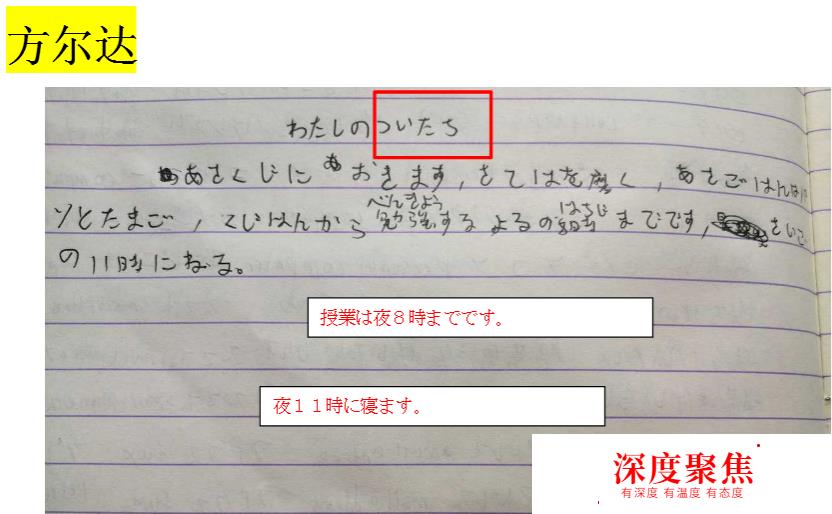 方尔达
わたしのついたち
あさくじにおきます，さてはを磨く，あさごはんは
ソとたまご，くじはんから勉強するよるの までです，さいご
べんきょう はちじ
の11時にねる。
授業は夜８時までです。
夜１１時に寝ます。
深度聚焦
有深度 有温度 有态度